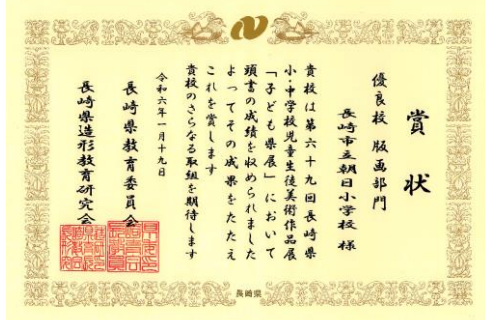 賞状
優良校 版画部門
長崎市立朝日小学校 様
貴校は第六十九回長崎県
小・中学校児童生徒美術作品展
「子ども県展」において
頭書の成績を収められました
よってその成果をたたえ
これを賞します
貴校のさらなる取組を期待します
令和六年一月十九日
長崎県教育委員会
長崎県造形教育研究会
長崎県